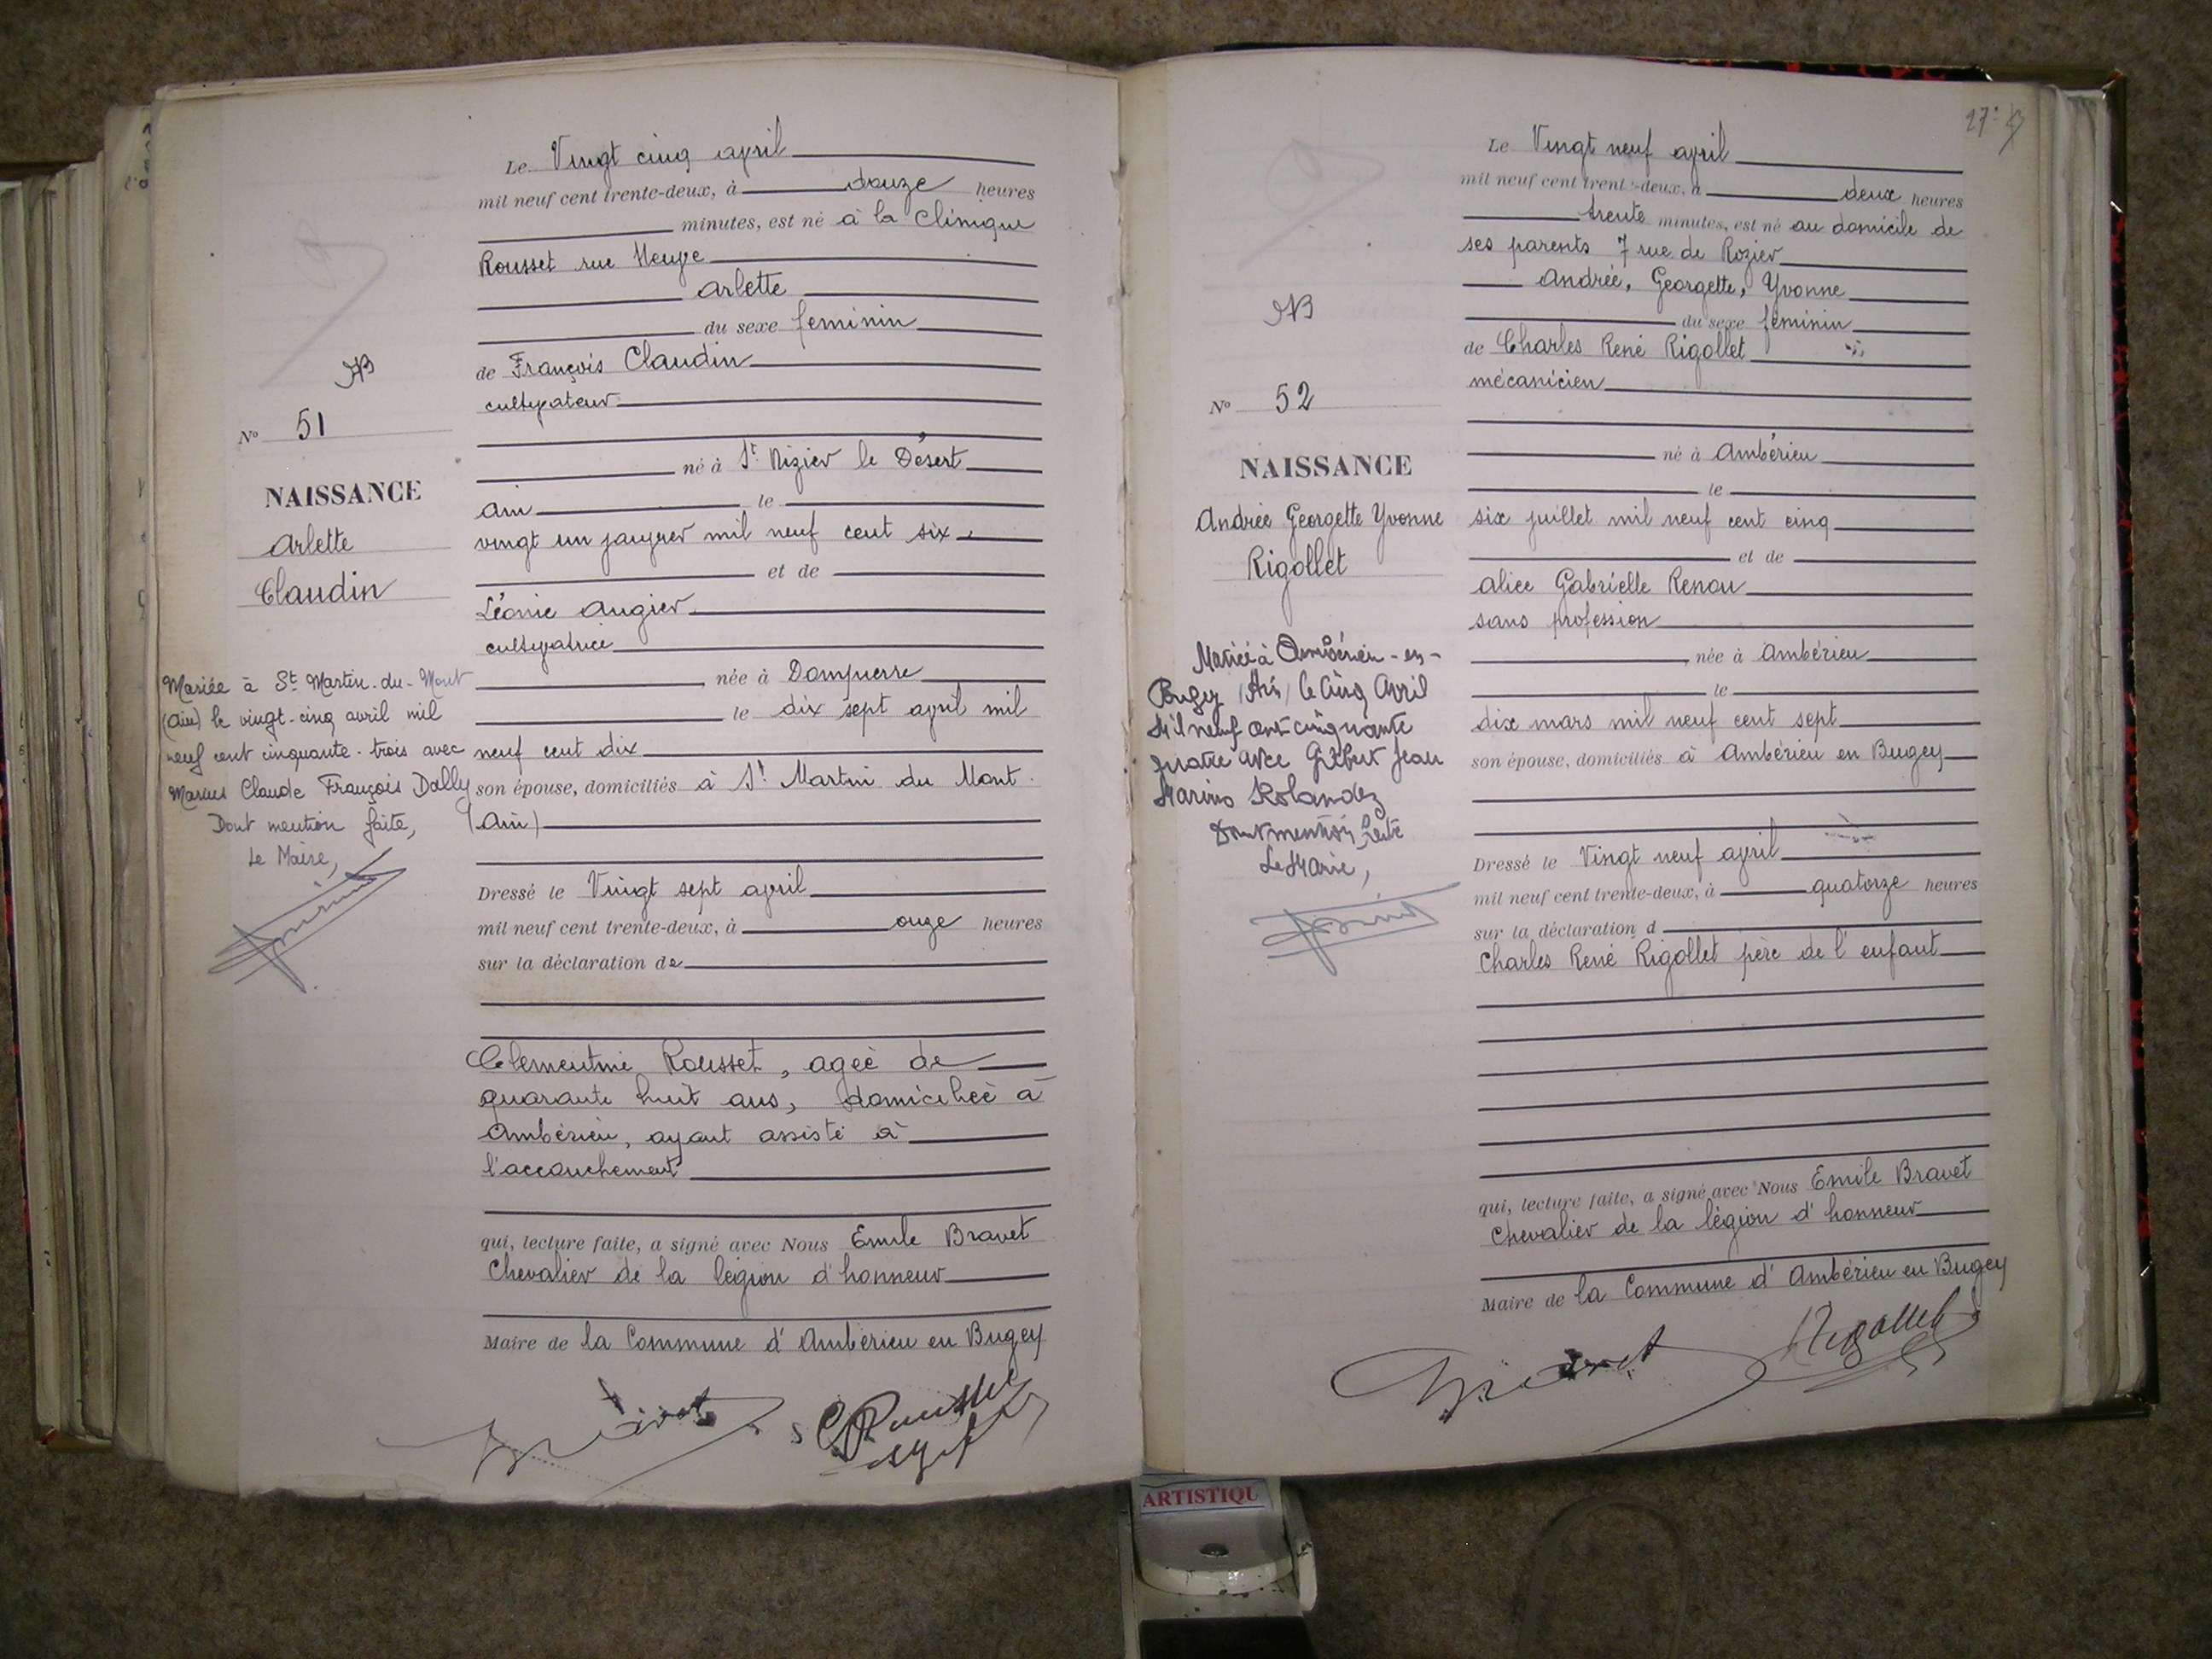 Le Vingt cinq avril
mil neuf cent trente-deux, à douze heures
minutes, est né à la Clinique
Rousset rue
Arlette
du sexe feminin
de François Claudin
cultivateur
né à St Nizier le Désert
Ain le
vingt un janvier mil neuf cent six
et de
Léonie Augier
cultivatrice
née à Dompierre
le dix sept avril mil
neuf cent dix
son épouse, domiciliés à St Martin du Mont
(Ain)
Dressé le Vingt sept avril
mil neuf cent trente-deux, à onze heures
sur la déclaration de
Clementine Rousset, agée de
quarante huit ans, domiciliée à
Ambérieu, ayant assisté à
l'accouchement
qui, lecture faite, a signé avec Nous Emile Bravet
Chevalier de la légion d'honneur
Maire de la Commune d'Ambérieu en Bugey
No 51
NAISSANCE
Arlette
Claudin
Mariée à St Martin-du-Mont
(Ain) le vingt-cinq avril mil
neuf cent cinquante-trois avec
Marius Claude François Dally
Dont mention faite,
Le Maire,
Le Vingt neuf avril
mil neuf cent trente-deux, à deux heures
trente minutes, est né au domicile de
ses parents 7 rue de Rozier
Andrée, Georgette, Yvonne
du sexe féminin
de Charles René Rigollet
mécanicien
né à Ambérieu
le
six juillet mil neuf cent cinq
et de
Alice Gabrielle Renou
sans profession
née à Ambérieu
le
dix mars mil neuf cent sept
son épouse, domiciliés à Ambérieu en Bugey
Dressé le Vingt neuf avril
mil neuf cent trente-deux, à quatorze heures
sur la déclaration d
Charles René Rigollet père de l'enfant
qui, lecture faite, a signé avec Nous Emile Bravet
Chevalier de la légion d'honneur
Maire de la Commune d'Ambérieu en Bugey
Rigollet
No 52
NAISSANCE
Andrée Georgette Yvonne
Rigollet
Mariée à Ambérieu-en-
Bugey (Ain) le cinq Avril
Mil neuf cent cinquante
quatre avec Gilbert Jean
Marius Rolandez
Dont mention faite
Le Maire,
ARTISTIQU